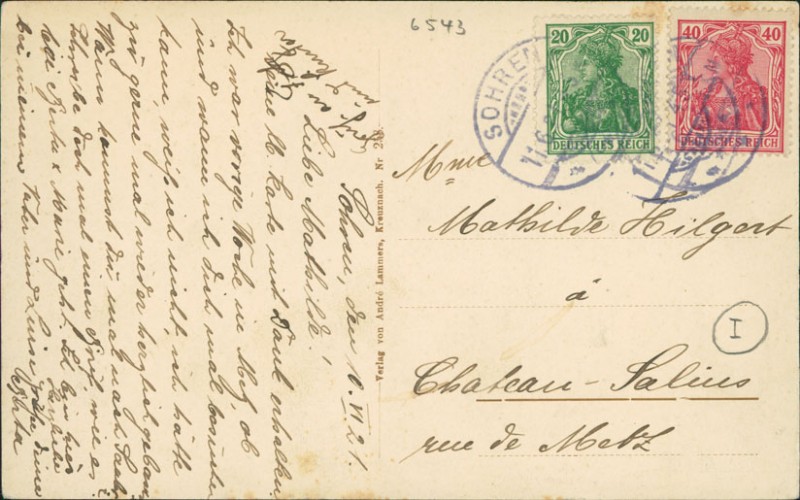 6543
20 20
DEUTSCHES REICH
40 40
DEUTSCHES REICH
SOHREN
11.6.
Mme
Mathilde Hilgert
à
Chateau-Salins
rue de Metz
I
Verlag von André Lammers, Kreuznach. Nr.
Sohren, den 10.VI.21.
Liebe Mathilde!
Deine l. Karte mit Dank erhalten
Ich war vorige Woche in Metz, ob
und wann ich dich mal besuchen
kann, weiß ich nicht, ich hätte
zu gerne mal wieder
Wann kommst du mal nach
Schreibe doch mal einen Brief, wie es
bei + Marie geht. Ich bin hier
bei meinem Vater und Luise, deine